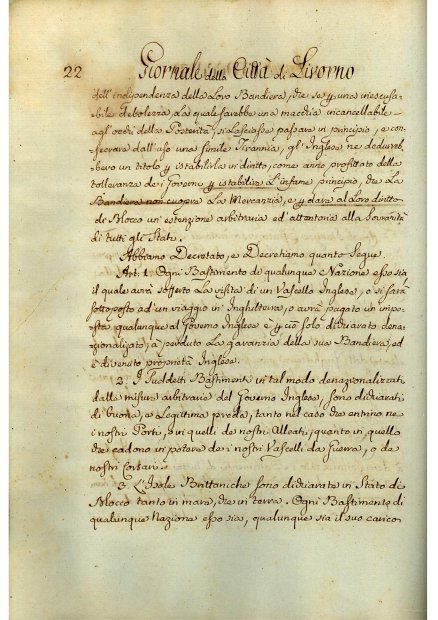 22 Giornale della Città di Livorno
dell'indipendenza della Loro Bandiera, che se p una inescusa-
bile debolezza, La quale sarebbe una macchia incancellabile
agl'occhi della Posterità, si Lasciasse passare in principio, e con-
secrare dall'uso una simile Tirannia, gl'Inglesi ne dedurreb-
bero un titolo p istabilirla in diritto, come anno profittato della
tolleranza de i Governi p istabilire L'infame principio, che La
Bandiera non cuopra La Mercanzia, e p dare al Loro diritto
di Blocco un'estenzione arbitraria ed'attentoria alla Sovranità
di tutti gli Stati.
Abbiamo Decretato, e Decretiamo quanto Segue.
Art. 1. Ogni Bastimento di qualunque Nazione esso sia,
il quale avrà sofferto La visita di un Vascello Inglese, o si sarà
sottoposto ad un viaggio in Inghilterra, o avrà pagato un impo-
sta qualunque al Governo Inglese è p ciò solo dichiarato dena-
zionalizzato, à perduto La garanzia della sua Bandiera, ed
è divenuto proprietà Inglese.
2. I suddetti Bastimenti in tal modo denazionalizzati
dalle misure arbitrarie del Governo Inglese, sono dichiarati
di buona, e Legittima preda, tanto nel caso che entrino ne
i nostri Porti, o in quelli de nostri Alleati, quanto in quello
che cadono in potere de i nostri Vascelli da Guerra, o da
nostri Corsari.
3. L'Isole Brittaniche sono dichiarate in Stato di
Blocco tanto in mare, che in terra. Ogni Bastimento di
qualunque Nazione esso sia, qualunque sia il suo carico